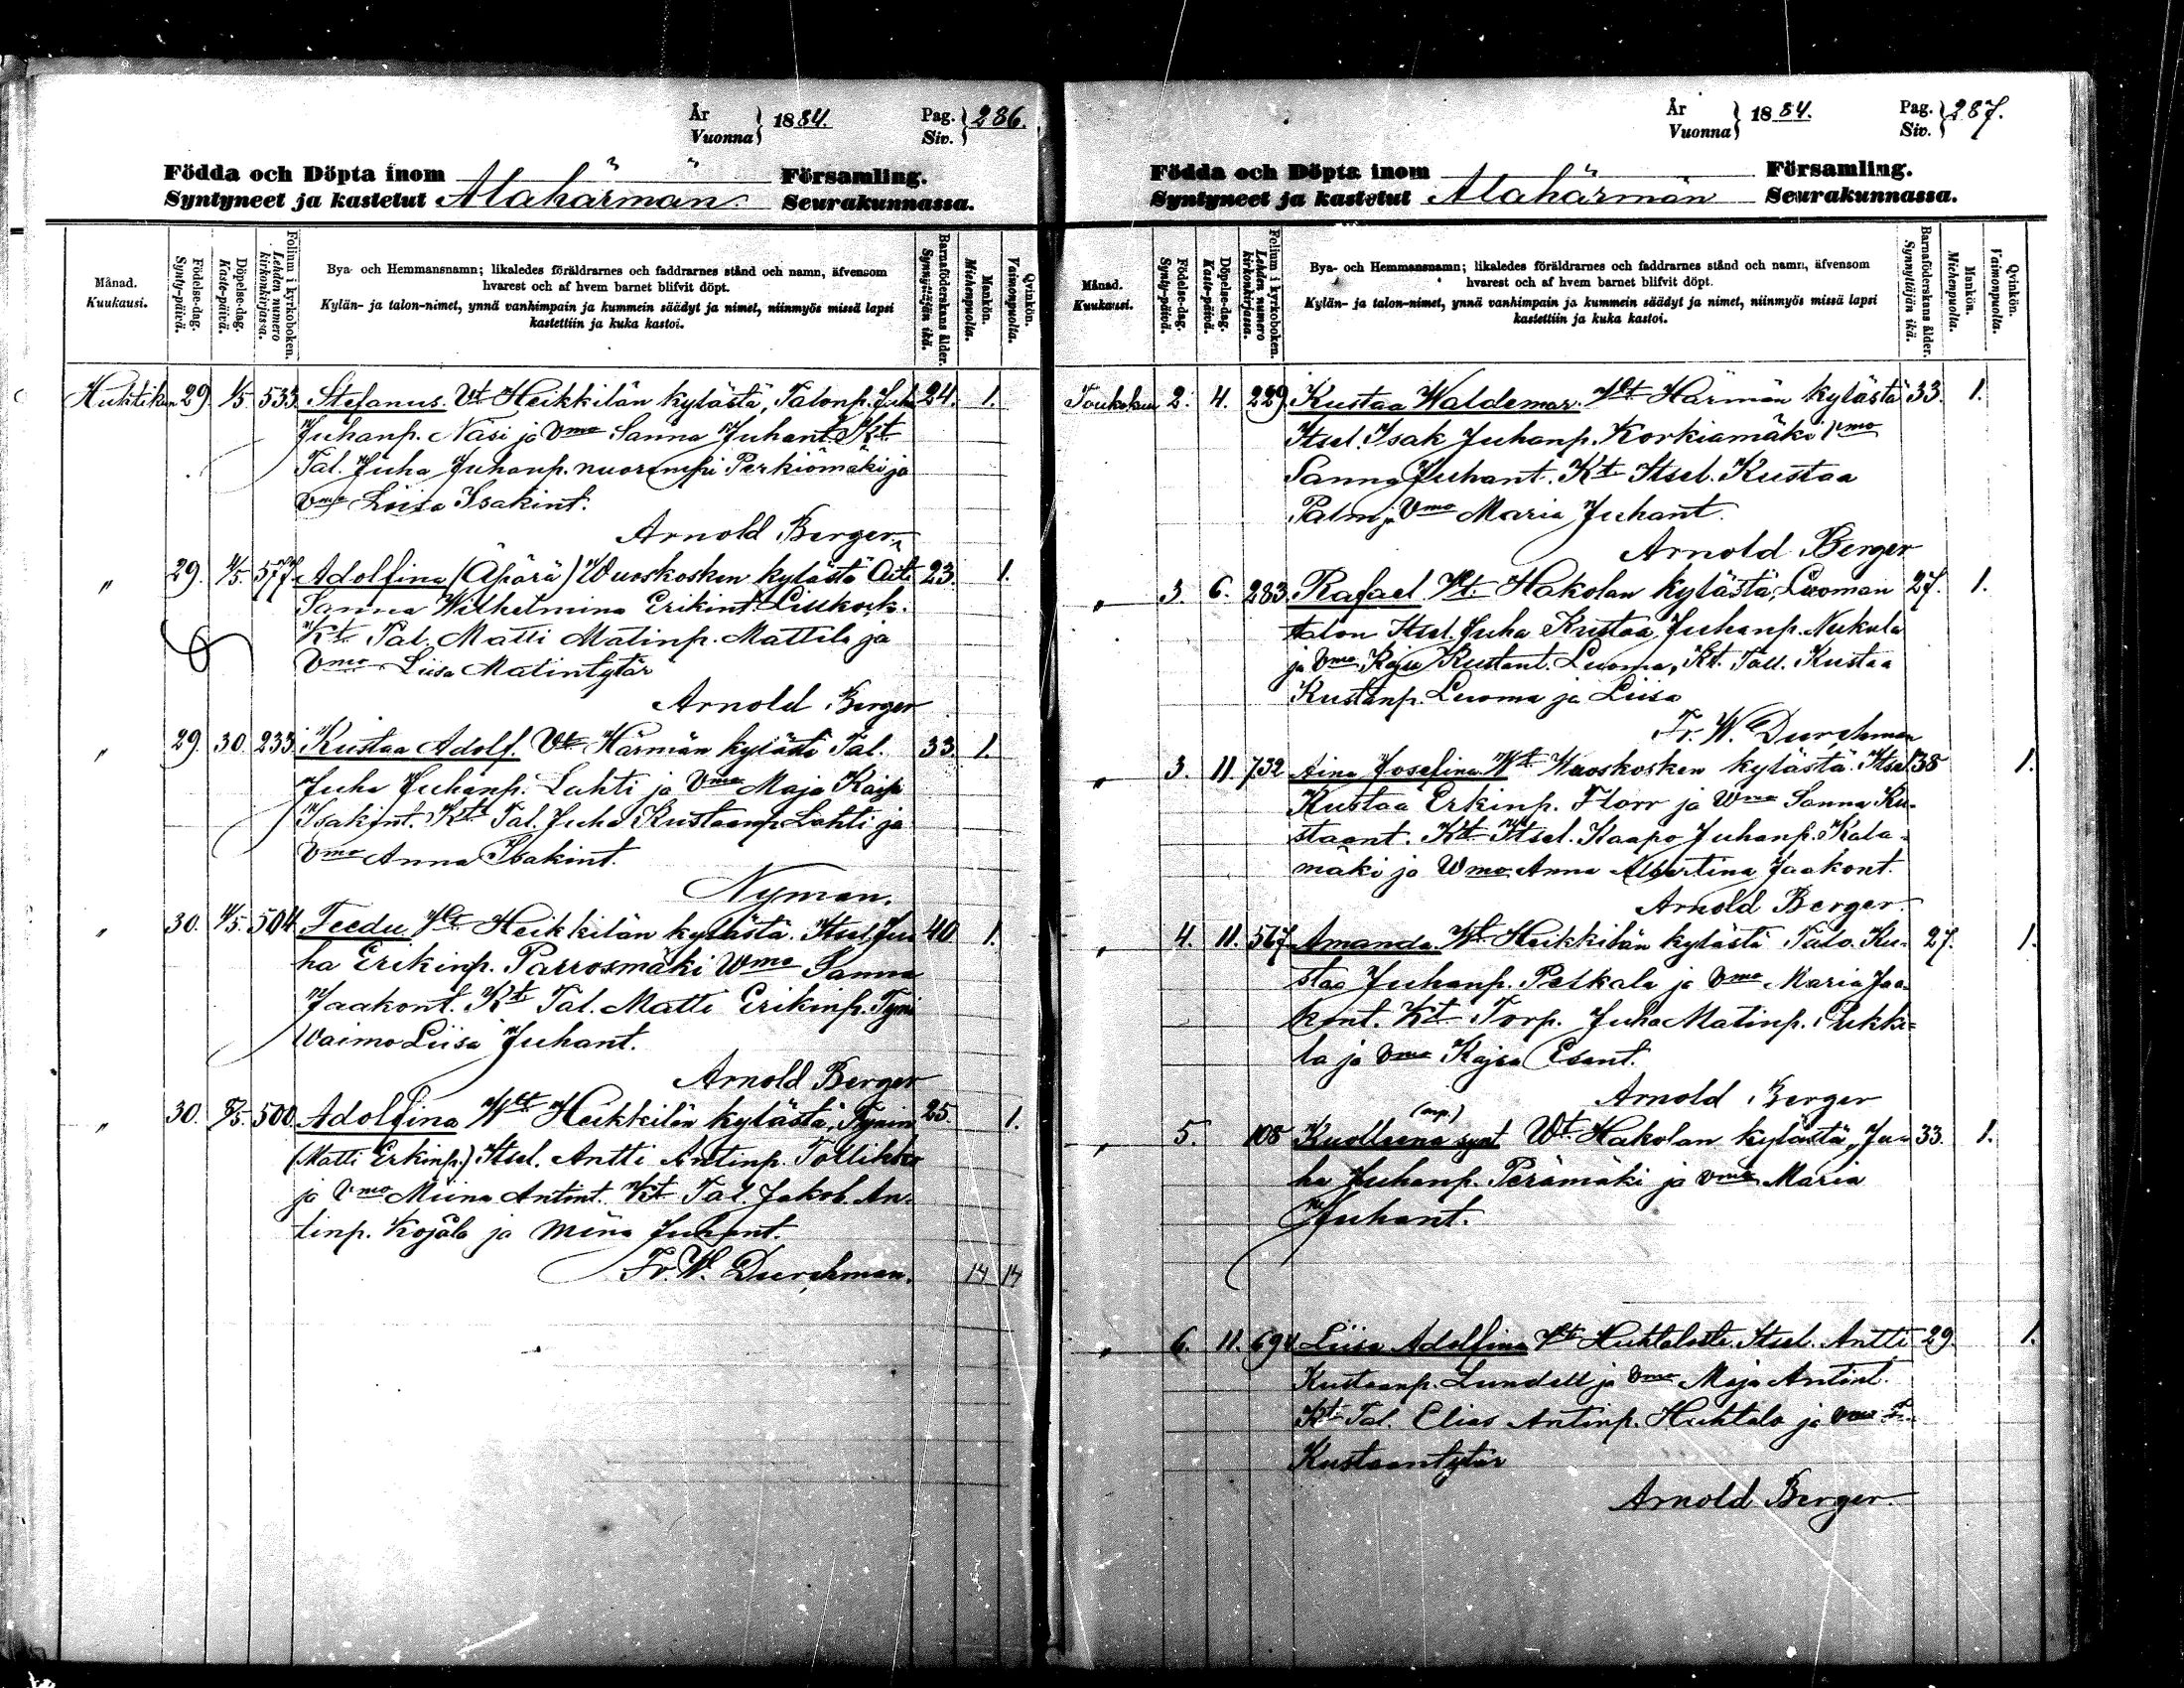 År
Vuonna } 1884.
Pag.
Siv. } 286.
Födda och Döpta inom Församling.
Syntyneet ja kastetut Alahärmän Seurakunnassa.
Månad.
Kuukausi.
Födelse-dag.
Synty-päivä.
Döpelse-dag.
Kaste-päivä.
Folium i kyrkoboken.
Lehden numero
kirkonkirjassa.
Bya- och Hemmansnamn; likaledes föräldrarnes och faddrarnes stånd och namn, äfvensom
hvarest och af hvem barnet blifvit döpt.
Kylän- ja talon-nimet, ynnä vanhimpain ja kummein säädyt ja nimet, niinmyös missä lapsi
kastettiin ja kuka kastoi.
Barnaföderskans ålder.
Synnyttäjän ikä.
Mankön.
Miehenpuolia.
Qvinkön.
Vaimonpuolia.
Huhtikuu 29 1/5 533. Stefanus. Vt Heikkilän kylästä, Talonp. Juha 24. 1.
Juhanp. Näsi ja Vmo Sanna Juhant. Kt
Tal. Juha Juhanp. nuorempi Perkiömäki ja
Vmo Liisa Isakint.
Arnold Berger
" 29. 4/5. 577 Adolfina (Äpärä) Wuoskosken kylästä Äiti 23. 1.
Sanna Wilhelmina Erikint.
Kt Tal. Matti Matinp. Mattila ja
Vmo Liisa Matintytär
Arnold Berger
" 29. 30. 233. Kustaa Adolf. Vt Härmän kylästä Tal. 33. 1.
Juha Juhanp. Lahti ja Vmo Maja Kaisa
Isakint. Kt Tal. Juha Kustaanp. Lahti ja
Vmo Anna Isakint.
Nyman.
" 30. 4/5. 504. Feedu Vt Heikkilän kylästä. Itsel. Ju= 40. 1.
ha Erikinp. Parrosmäki Wmo Sanna
Jaakont. Kt Tal. Matti Erikinp. Tyni
Waimo Liisa Juhant.
Arnold Berger
" 30. 5/5. 500. Adolfina Wt Heikkilän kylästä, Tynin 25. 1.
(Matti Erkinp.) Itsel. Antti Antinp. Tollikko
ja Vmo Miina Antint. Kt Tal. Jakob An=
tinp. Kojola ja Miina Juhant.
Fr. W. Durchman. 14 14
År
Vuonna } 1884.
Pag.
Siv. } 287.
Födda och Döpta inom Församling.
Syntyneet ja kastetut Alahärmän Seurakunnassa.
Månad.
Kuukausi.
Födelse-dag.
Synty-päivä.
Döpelse-dag.
Kaste-päivä.
Folium i kyrkoboken.
Lehden numero
kirkonkirjassa.
Bya- och Hemmansnamn; likaledes föräldrarnes och faddrarnes stånd och namn, äfvensom
hvarest och af hvem barnet blifvit döpt.
Kylän- ja talon-nimet, ynnä vanhimpain ja kummein säädyt ja nimet, niinmyös missä lapsi
kastettiin ja kuka kastoi.
Barnaföderskans ålder.
Synnyttäjän ikä.
Mankön.
Miehenpuolia.
Qvinkön.
Vaimonpuolia.
Toukokuu 2. 4. 229. Kustaa Waldemar. Vt Härmän kylästä 33. 1.
Itsel. Isak Juhanp. Korkiamäki Vmo
Sanna Juhant. Kt Itsel. Kustaa
Palm ja Vmo Maria Juhant.
Arnold Berger
" 3. 6. 283. Rafael Vt. Hakolan kylästä, Luoman 27. 1.
talon Itsel. Juha Kustaa Juhanp. Nukala
ja Vmo Kajsa Kustant. Luoma, Kt. Tall. Kustaa
Kustanp. Luoma ja Liisa
Fr. W. Durchman
" 3. 11. 732 Aina Josefina Wt Wuoskosken kylästä. Itsel. 38 1.
Kustaa Erkinp. Florr ja Wmo Sanna Ku-
staant. Kt Itsel. Kaapo Juhanp. Kala-
mäki ja Wmo. Anna Albertina Jaakont.
Arnold Berger.
" 4. 11. 567 Amanda. Wt Heikkilän kylästä Talo. Ku- 27. 1.
staa Juhanp. Peskala ja Vmo Maria Jaa-
kont. Kt Torp. Juha Matinp. Pukki=
la ja Vmo Kajsa Esant.
Arnold Berger
" 5. 108 Kuolleena synt Wt. Hakolan kylästä, Ju= 33. 1.
ha Juhanp. Perämäki ja vmo Maria
Juhant.
" 6. 11. 694 Liisa Adolfina Vt Huhtalasta. Itsel. Antti 29. 1.
Kustaanp. Lundell ja Vmo Maja Antint.
Kt Tal. Elias Antinp. Huhtala ja vmo
Kustaantytär
Arnold Berger.